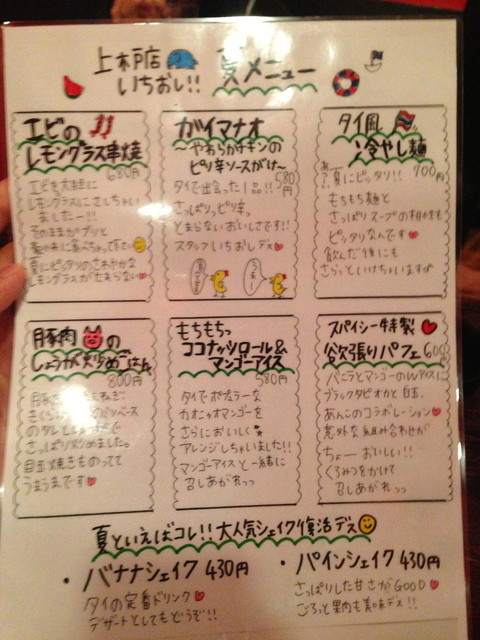 上木戸店
いちおし!!
夏メニュー
エビの
レモングラス串焼
680円
エビを大胆に
レモングラスにさしちゃい
ましたー!!
そのままガブリと
夏にピッタリのさわやかな
レモングラスがたまらない
ガイマナオ
〜やわらかチキンの
ピリ辛ソースがけ〜
580円
タイで出会った1品!!
さっぱりピリ辛。
とまらないおいしさです!!
スタッフいちおしデス
タイ風
冷やし麺
700円
夏にピッタリ!!
もちもち麺と
さっぱりスープの相性も
ピッタリなんです
飲んだ後にも
さらっといけちゃいますが
豚肉の
しょうが炒めごはん
800円
のタレとしょうがで
さっぱり炒めました。
目玉焼きものってて
うまうまです
もちもちっ
ココナッツロール&
マンゴーアイス
580円
タイでポピュラーな
カオニャオマンゴーを
さらにおいしく
アレンジしちゃいました!!
マンゴーアイスと一緒に
召しあがれっっ
スパイシー特製
欲張りパフェ 600
バニラとマンゴーのWアイスに
ブラックタピオカと白玉、
あんこのコラボレーション
意外な組み合わせが
ちょーおいしい!!
くろみつをかけて
召しあがれっっ
夏といえばコレ!!大人気シェイク復活デス
・バナナシェイク 430円
タイの定番ドリンク
デザートとしてもどうぞ!!
・パインシェイク 430円
さっぱりした甘さがGOOD
ごろっと果肉も美味デス!!